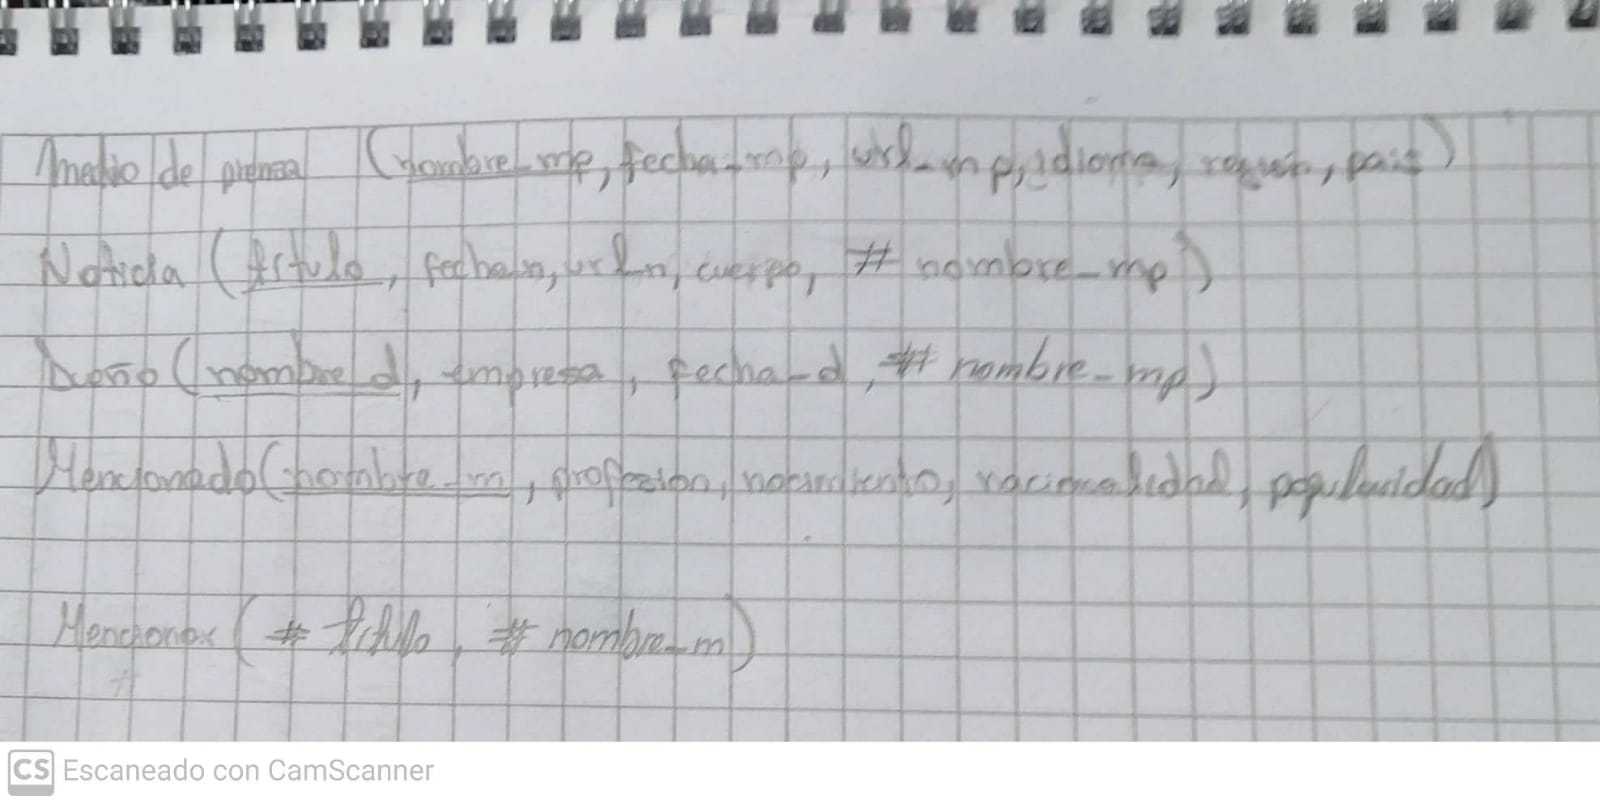 Medio de prensa (nombre_mp, fecha_mp, url_mp, idioma, region, pais)
Noticia (titulo, fecha_n, url_n, cuerpo, # nombre_mp)
Dueño (nombre_d, empresa, fecha_d, # nombre_mp)
Mencionado (nombre_m, profesion, nacimiento, nacionalidad, popularidad)
Mencionar (# titulo, # nombre_m)
CS Escaneado con CamScanner